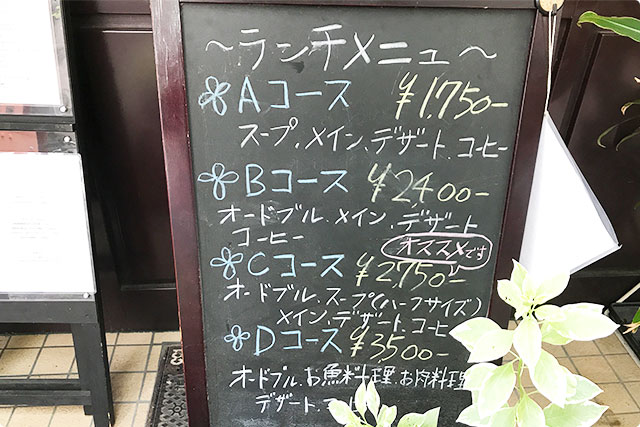 〜ランチメニュー〜
Aコース ¥1,750-
スープ、メイン、デザート、コーヒー
Bコース ¥2400-
オードブル、メイン、デザート
コーヒー
オススメです
Cコース ¥2,750-
オードブル、スープ(ハーフサイズ)
メイン、デザート、コーヒ
Dコース ¥3500-
オードブル、お魚料理、お肉料理
デザート、